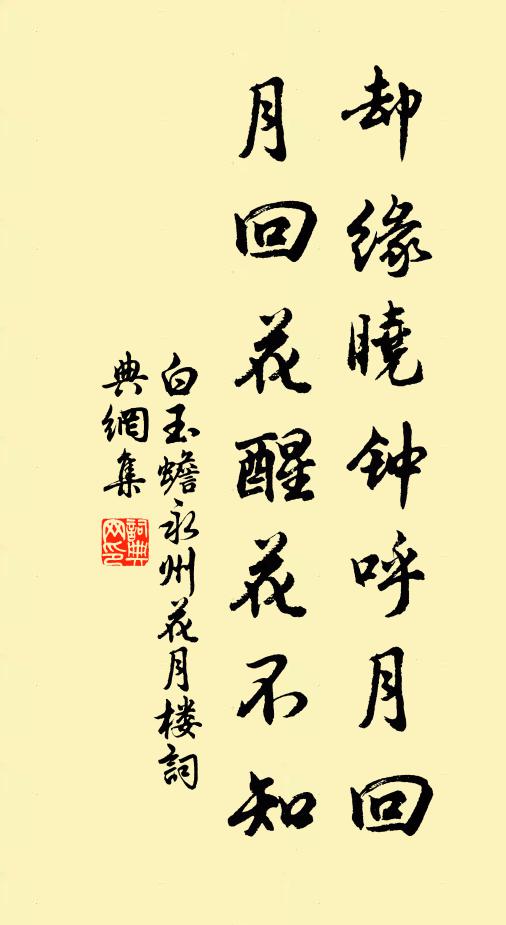 却缘曉钟呼月回
月回花醒花不知
白玉蟾永州花月楼詞
典網集
詞典网印